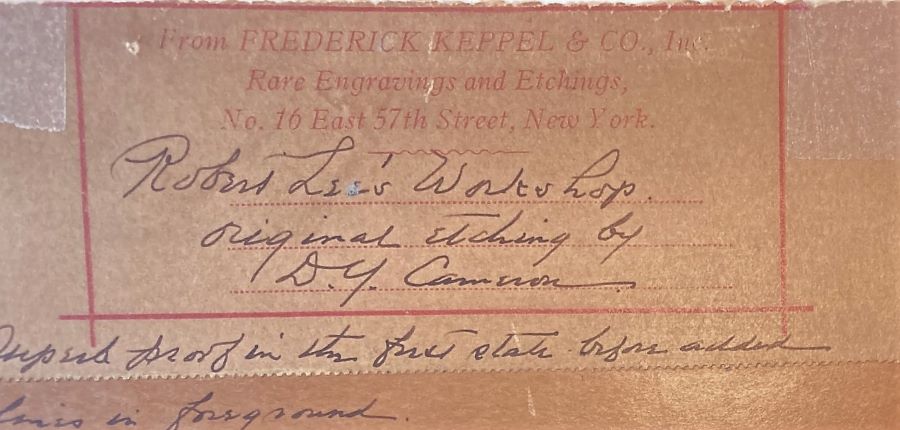 From FREDERICK KEPPEL & CO., Inc.
Rare Engravings and Etchings,
No. 16 East 57th Street, New York.
Robert Lee's Workshop.
original etching by
D. Y. Cameron
superb proof in the first state before added
lines in foreground.